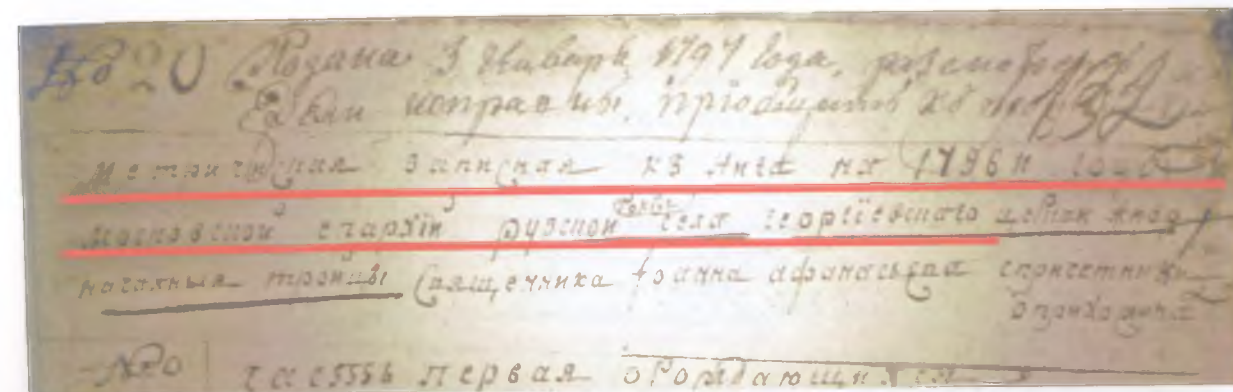 No 20 Подана 3 Января 1797 года,
Ежели исправны, приобщить къ 132
Метрическая записная книга на 1796й годъ
московской епархїи рузской села георгїевского церкви
началныя троицы священника Іоанна афанасьева спричетники
оприходила
No часть первая орождающихся